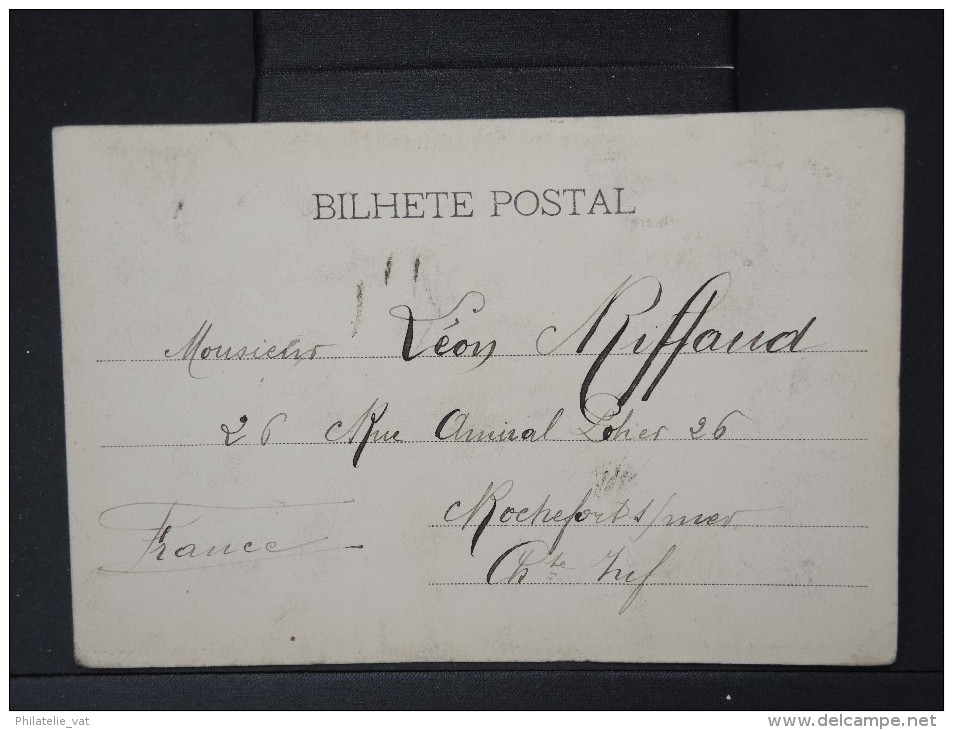 BILHETE POSTAL
Monsieur Léon Riffaud
26 Rue Amiral Pothier 26
Rochefort s/mer
France
Ch te Inf
Philatelie_vat
www.delcampe.net